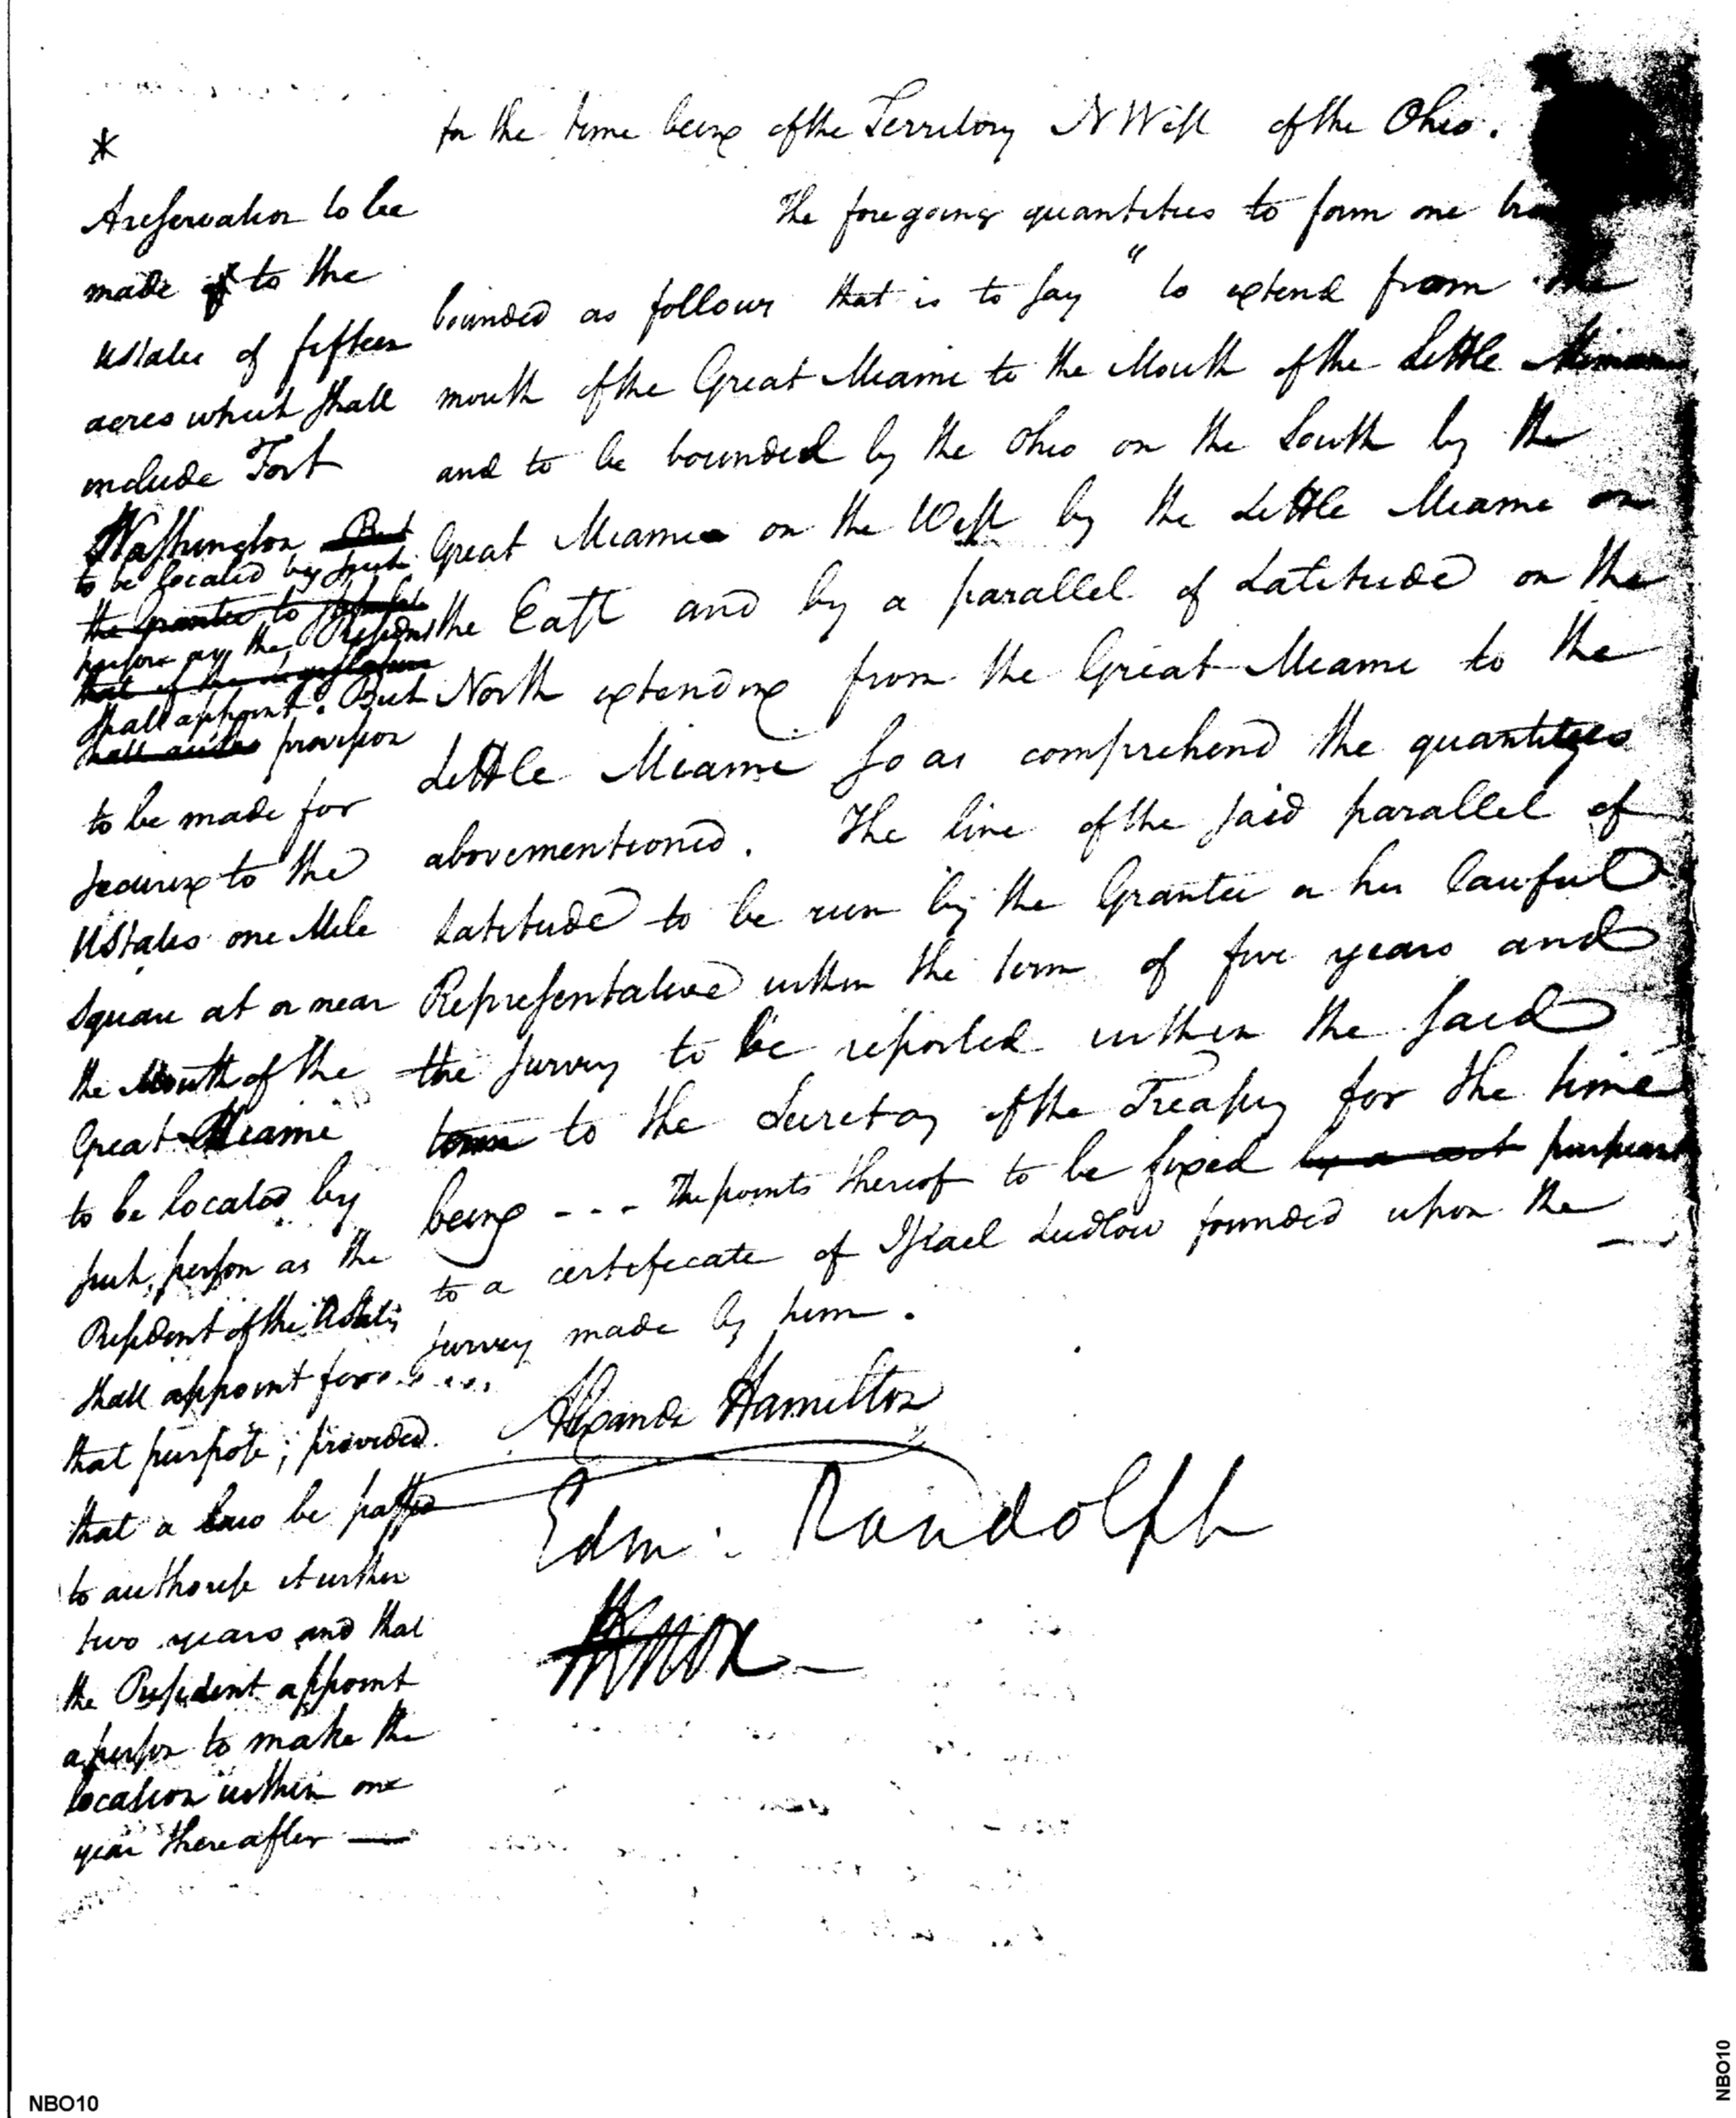 for the time being of the Territory N West of the Ohio.
The foregoing quantities to form one
bounded as follows that is to say " to extend from the
mouth of the Great Meame to the Mouth of the Little
and to be bounded by the Ohio on the South by the
Great Meame on the West by the Little Meame on
the East and by a parallel of Latitude on the
North extending from the Great Meame to the
Little Meame so as comprehend the quantities
abovementioned. The line of the said parallel of
Latitude to be run by the Grantee or his lawful
Representative within the term of five years and
the survey to be reported within the said
term to the Secretary of the Treasury for the time
being --- The points thereof to be fixed by a pursuant
to a certificate of Israel Ludlow founded upon the
survey made by him.
Alexander Hamilton
Edm: Randolph
HKnox
*
A reservation to be
made to the
UStates of fifteen
acres which shall
include Fort
Washington But
to be located by such
the Grantee to
person as the President
that if the Legislature
shall appoint. But
shall provision
to be made for
securing to the
UStates one Mile
square at or near
the Mouth of the
Great Meame
to be located by
such person as the
President of the UStates
shall appoint for
that purpose; provided
that a law be passed
to authorise it within
two years and that
the President appoint
a person to make the
location within one
year thereafter —
NBO10
NBO10